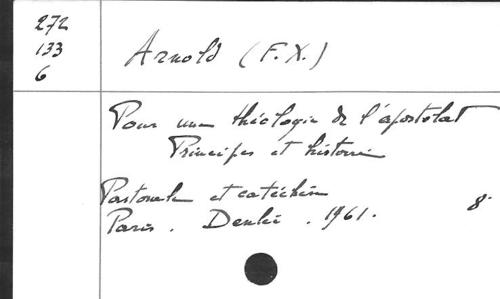 272
133
6
Arnold (F.X.)
Pour une théologie de l'apostolat
Principes et histoire
Pastorale et catéchèse
Paris. Desclée. 1961. 8°